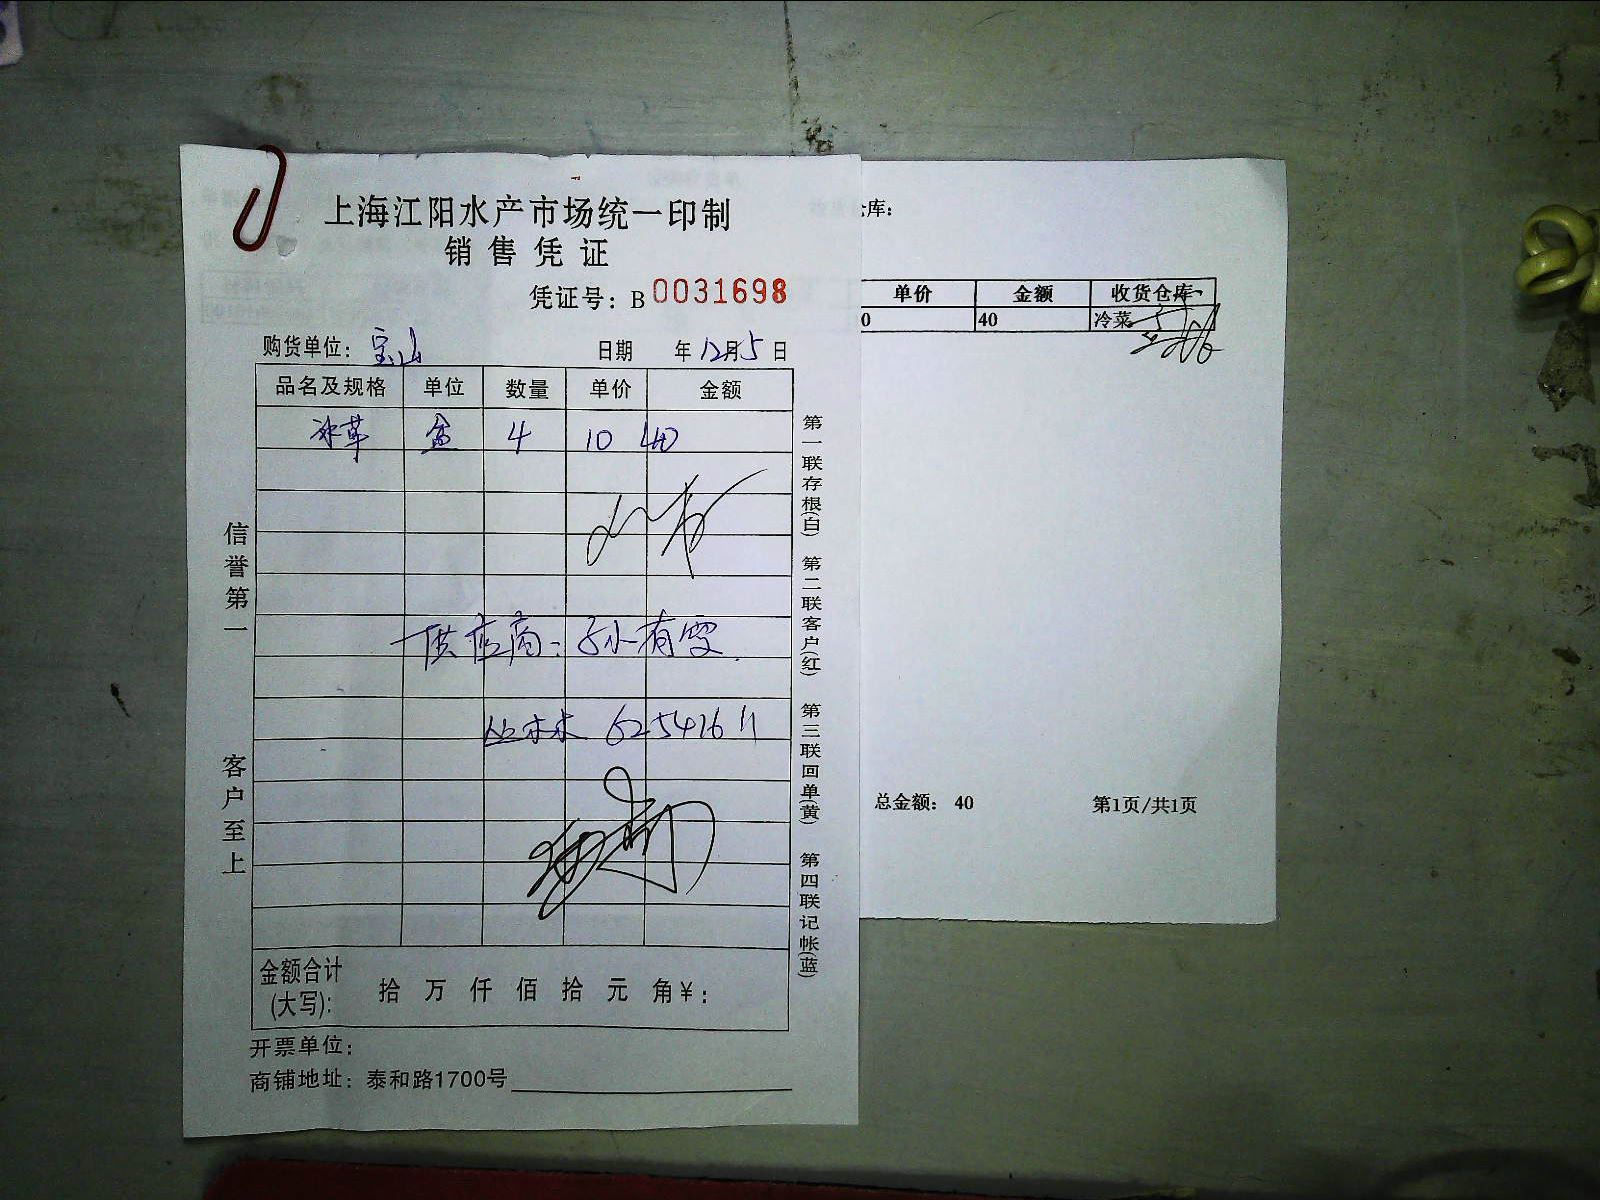 上海江阳水产市场统一印制
销售凭证
凭证号：B 0031698
购货单位：宝山 日期 年12月5日
品名及规格 单位 数量 单价 金额
冰草 盒 4 10 40
供应商：孙有雯
丛林林 62541611
金额合计(大写)： 拾 万 仟 佰 拾 元 角￥：
开票单位：
商铺地址：泰和路1700号
信誉第一
客户至上
第一联存根(白)
第二联客户(红)
第三联回单(黄)
第四联记帐(蓝)
库：
单价 金额 收货仓库
0 40 冷菜
总金额： 40 第1页/共1页